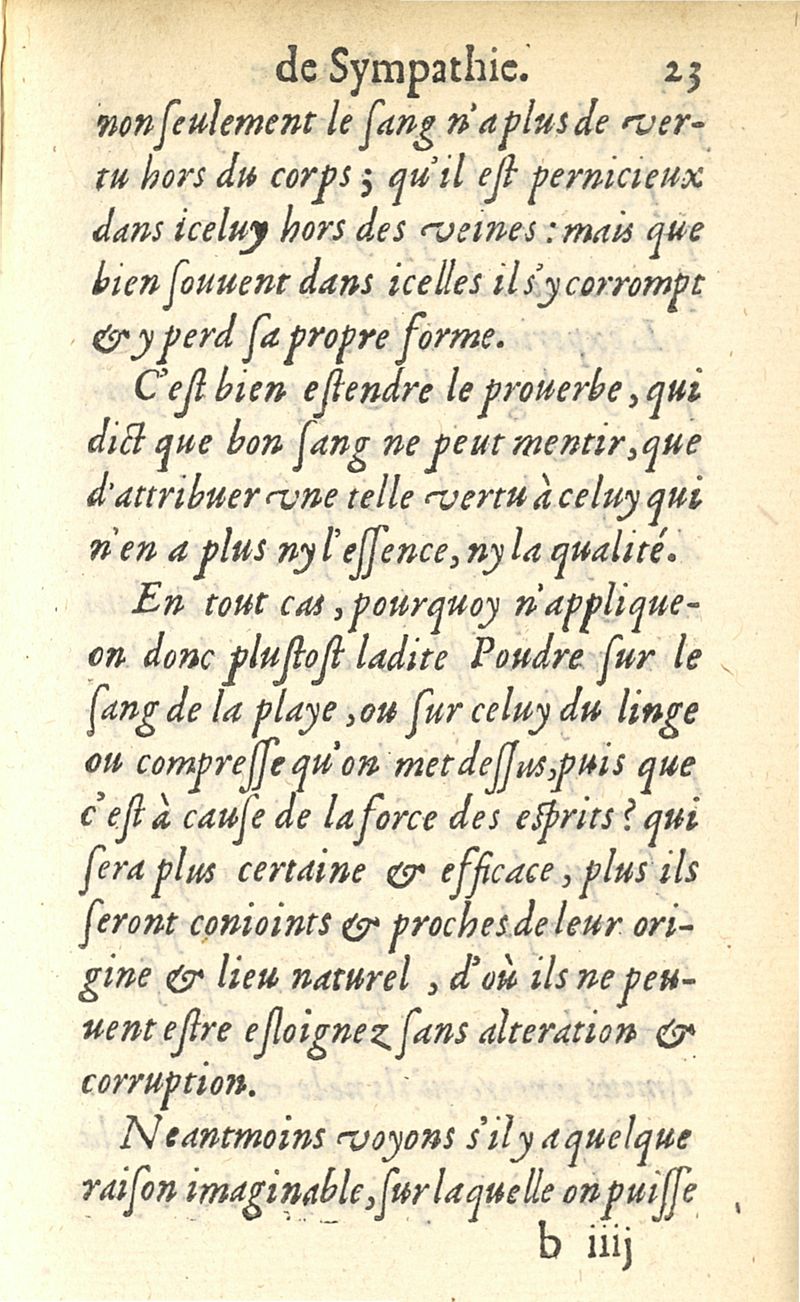 de Sympathie. 23
non ſeulement le ſang n'a plus de ver-
tu hors du corps ; qu'il eſt pernicieux
dans iceluy hors des veines : mais que
bien ſouuent dans icelles il s'y corrompt
& y perd ſa propre forme.
C'eſt bien eſtendre le prouerbe, qui
dict que bon ſang ne peut mentir, que
d'attribuer vne telle vertu à celuy qui
n'en a plus ny l'eſſence, ny la qualité.
En tout cas, pourquoy n'applique-
on donc pluſtoſt ladite Poudre ſur le
ſang de la playe, ou ſur celuy du linge
ou compreſſe qu'on met deſſus, puis que
c'eſt à cauſe de la force des eſprits ? qui
ſera plus certaine & efficace, plus ils
ſeront conioints & proches de leur ori-
gine & lieu naturel, d'où ils ne peu-
uent eſtre eſloignez ſans alteration &
corruption.
Neantmoins voyons s'il y a quelque
raiſon imaginable, ſur laquelle on puiſſe
b iiij